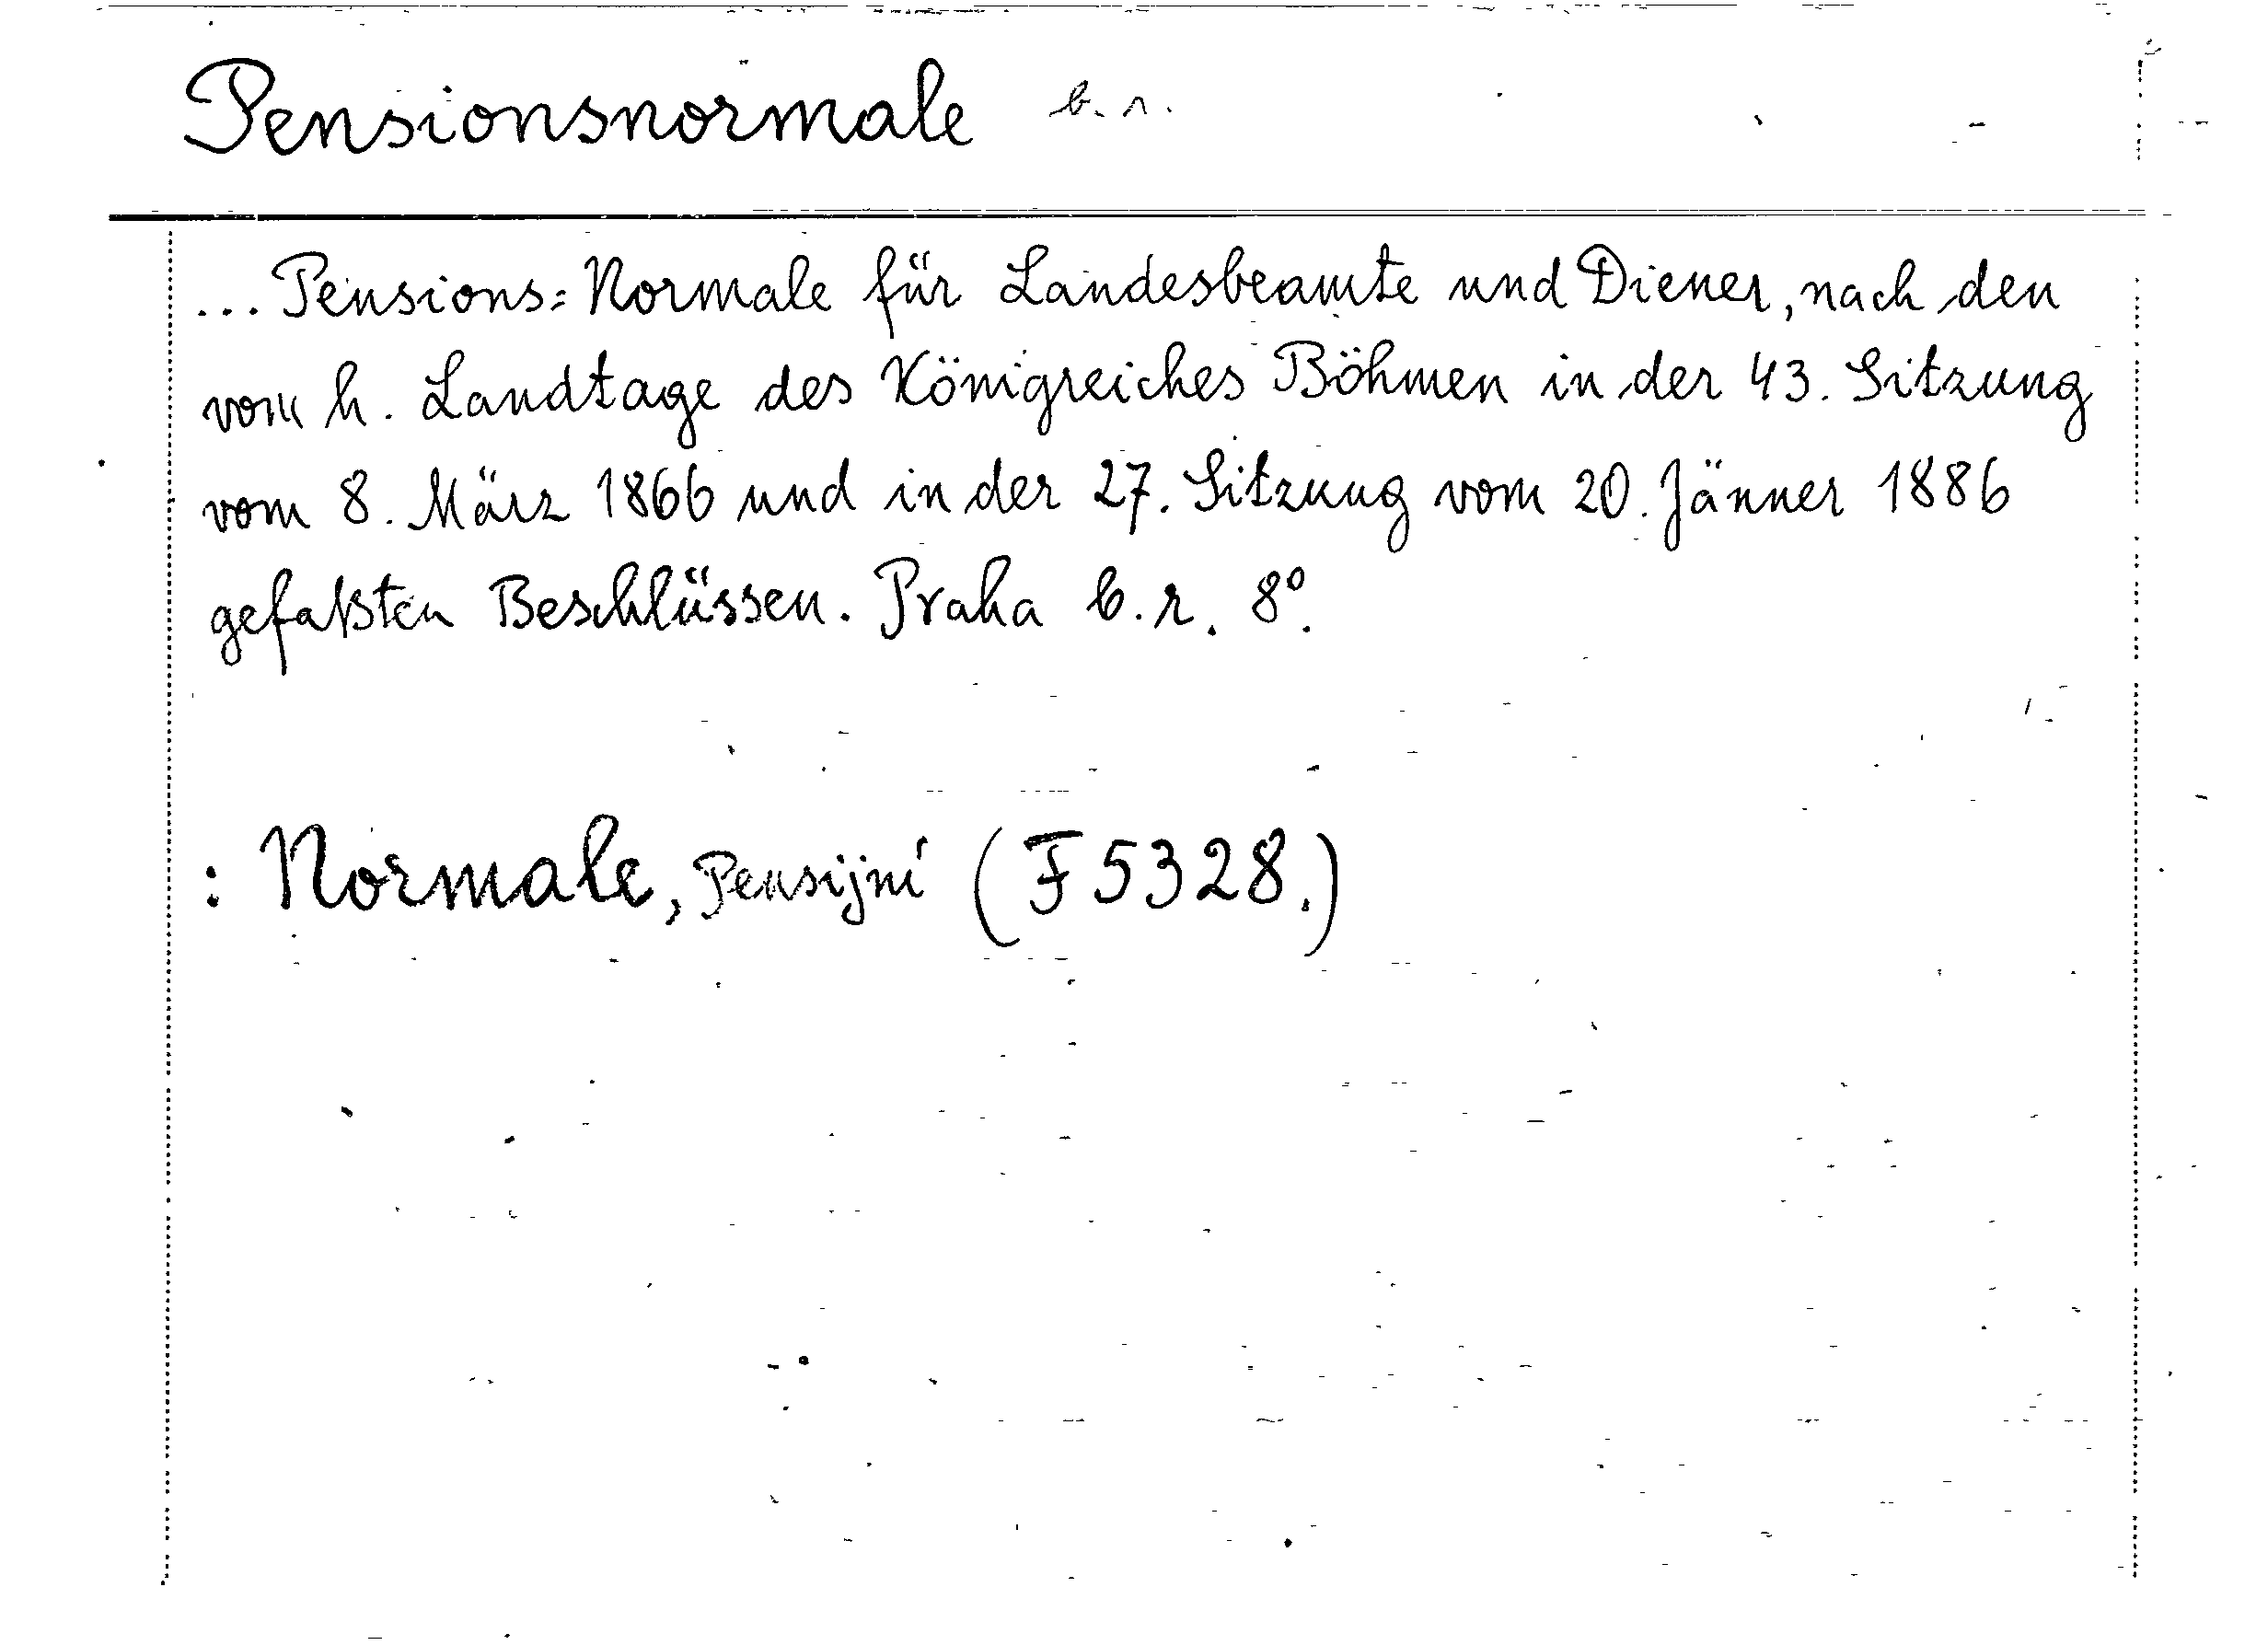 Pensionsnormale b. r.
... Pensions=Normale für Landesbeamte und Diener, nach den
vom h. Landtage des Königreiches Böhmen in der 43. Sitzung
vom 8. März 1866 und in der 27. Sitzung vom 20. Jänner 1886
gefaßten Beschlüssen. Praha b. r. 8°.
: Normale, Pensijní (F 5328.)